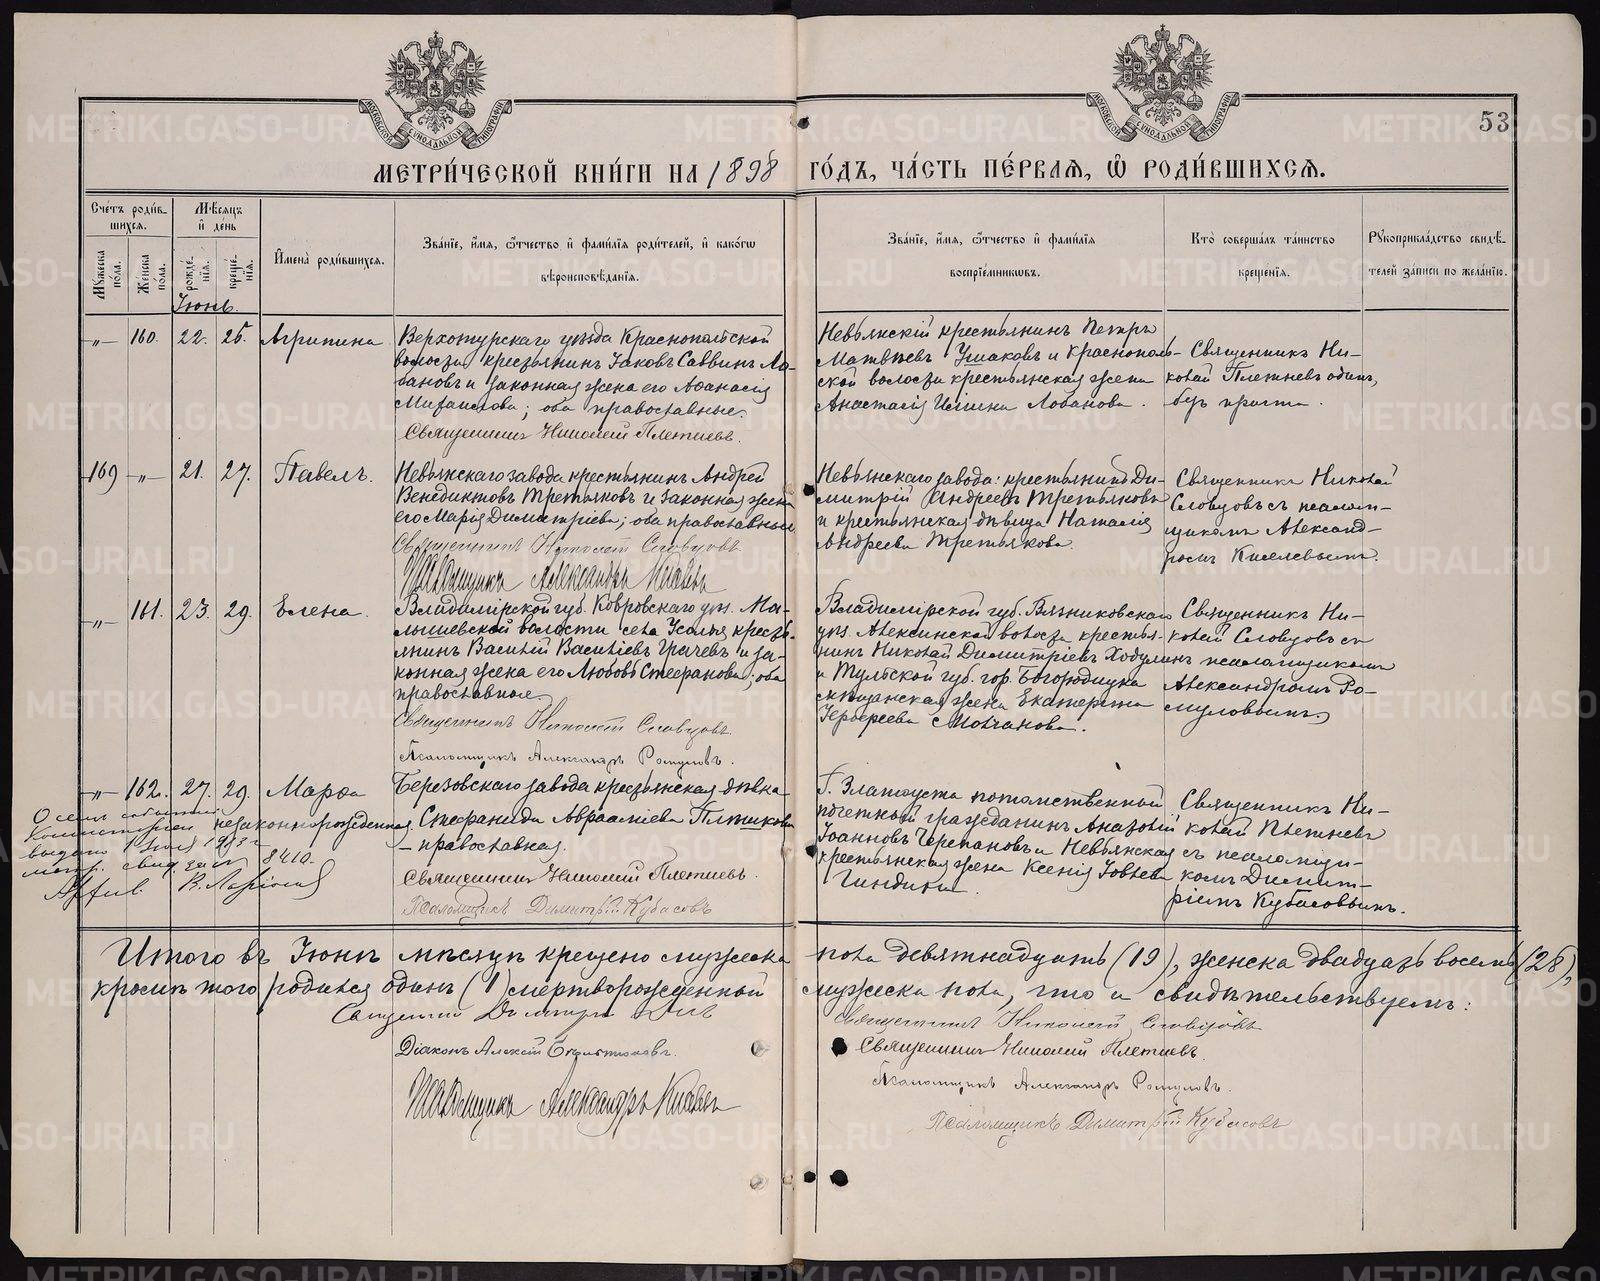 МОСКОВСКОЙ СѴНОДАЛЬНОЙ ТИПОГРАФІИ
МОСКОВСКОЙ СѴНОДАЛЬНОЙ ТИПОГРАФІИ
53
МЕТРИ́ЧЕСКОЙ КНИ́ГИ НА 1898 ГО́ДЪ, ЧА́СТЬ ПЕ́РВАѦ, Ѡ҆ РОДИ́ВШИХСѦ.
Сче́тъ роди́в-
шихся.
Мѣ́сяцъ
и҆ де́нь
Мꙋ́жеска
пола.
Же́нска
по́ла.
рожде́-
нїѧ.
креще́-
нїѧ.
И҆мена̀ роди́вшихся.
Зва́нїе, и҆́мѧ, ѻ҆́тчество и҆ фами́лїѧ роди́телей, и҆ како́гѡ
вѣроисповѣ́данїѧ.
Зва́нїе, и҆́мѧ, ѻ҆́тчество и҆ фами́лїѧ
воспрїе́мникѡвъ.
Кто̀ соверша́лъ та́инство
креще́нїѧ.
Рꙋкоприкла́дство свидѣ́-
телей за́писи по жела́нїю.
Іюнь.
-„- 160. 22. 25. Агрипина
Верхотурскаго уѣзда Краснопольской
волости крестьянинъ Іаковъ Саввинъ Ло-
бановъ и законная жена его Аѳанасія
Михаилова; оба православные.
Священникъ Николай Плетневъ.
Невьянскій крестьянинъ Петръ
Матвѣевъ Ушаковъ и Краснополь-
ской волости крестьянская жена
Анастасія Лобанова.
Священникъ Ни-
колай Плетневъ одинъ,
безъ причта.
169 -„- 21. 27. Павелъ.
Невьянскаго завода крестьянинъ Андрей
Венедиктовъ Третьяковъ и законная жена
его Марія Димитріева; оба православные.
Священникъ Николай Словцовъ.
Псаломщикъ Александръ Киселевъ
Невьянскаго завода: крестьянинъ Ди-
митрій Андреевъ Третьяковъ
и крестьянская дѣвица Наталія
Андреева Третьякова.
Священникъ Николай
Словцовъ съ псалом-
щикомъ Александ-
ромъ Киселевымъ.
-„- 161. 23. 29. Елена.
Владимірской губ. Ковровскаго уѣз. Ма-
лышевской волости села Усолья кресть-
янинъ Василій Васильевъ Грачевъ и за-
конная жена его Любовь Стефанова; оба
православные.
Священникъ Николай Словцовъ.
Псаломщикъ Александръ Ромуловъ.
Владимірской губ. Вязниковскаго
уѣз. Алексинской волости крестья-
нинъ Николай Димитріевъ Ходулинъ
и Тульской губ. гор. Богородицка
мѣщанская жена Екатерина
Молчанова.
Священникъ Ни-
колай Словцовъ съ
псаломщикомъ
Александромъ Ро-
муловымъ.
-„- 162. 27. 29. Марѳа
незаконнорожденная.
Березовскаго завода крестьянская дѣвка
Стефанида Авраамiева Пятикова
- православная.
Священникъ Николай Плетневъ.
Псаломщикъ Димитрій Кубасовъ
Г. Златоуста потомственный
почетный гражданинъ Анатолій
Іоанновъ Черепановъ и Невьянская
крестьянская жена Ксенія Іовлева
Гиндина.
Священникъ Ни-
колай Плетневъ
съ псаломщи-
комъ Димит-
ріемъ Кубасовымъ.
О семъ событіи
выдано 1 1903 г
метр. свид. за № 8410.
Итого въ Іюнѣ мѣсяцѣ крещено мужеска пола девятнадцать (19), женска двадцать восемь (28),
кромѣ того родился одинъ (1) мертворожденный мужеска пола, что и свидѣтельствуемъ:
Священникъ
Діаконъ Алексій
Псаломщикъ Александръ Киселевъ
Священникъ Николай Словцовъ
Священникъ Николай Плетневъ.
Псаломщикъ Александръ Ромуловъ.
Псаломщикъ Димитрій Кубасовъ
METRIKI.GASO-URAL.RU